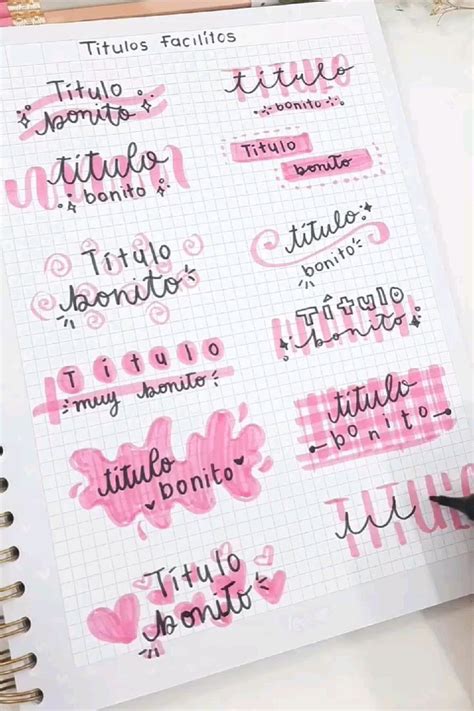 Titulos Facilitos
Título
bonito
título
bonito
título
bonito
Título
bonito
Título
bonito
título
bonito
Título
bonito
Título
muy bonito
título
bonito
título
bonito
TITULO
Título
bonito